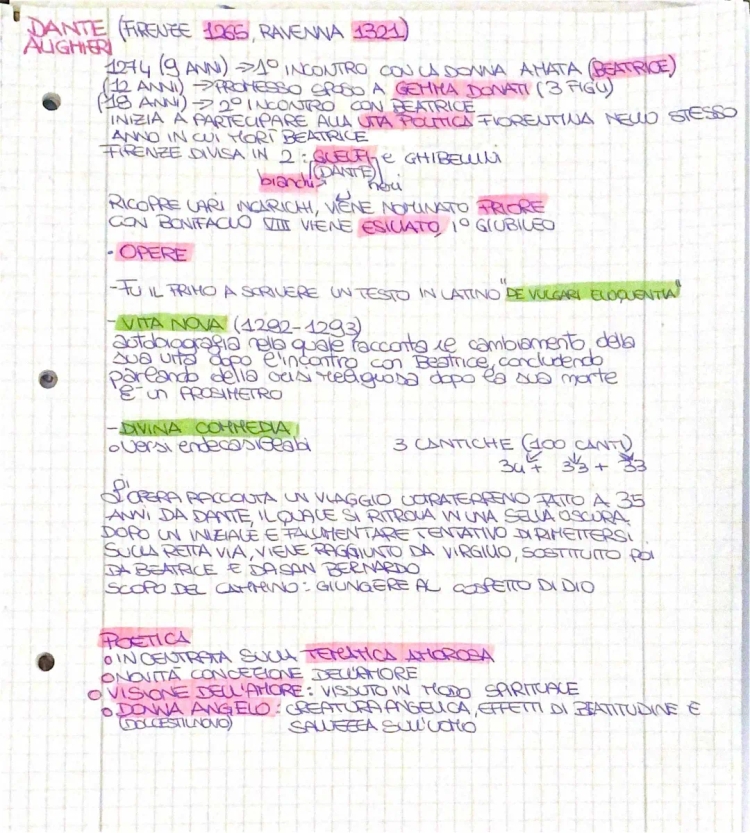 DANTE (FIRENZE 1265, RAVENNA 1321)
ALIGHIERI
1274 (9 ANNI) => 1° INCONTRO CON LA DONNA AMATA (BEATRICE)
(12 ANNI) -> PROMESSO SPOSO A GEMMA DONATI (3 FIGLI)
(18 ANNI) -> 2° INCONTRO CON BEATRICE
INIZIA A PARTECIPARE ALLA VITA POLITICA FIORENTINA NELLO STESSO
ANNO IN CUI MORÌ BEATRICE
FIRENZE DIVISA IN 2: GUELFI e GHIBELLINI
(DANTE)
bianchi neri
RICOPRE VARI INCARICHI, VIENE NOMINATO PRIORE
CON BONIFACIO VIII VIENE ESILIATO, 1° GIUBILEO
· OPERE
- FU IL PRIMO A SCRIVERE UN TESTO IN LATINO "DE VULGARI ELOQUENTIA"
- VITA NOVA (1292-1293)
autobiografia nella quale racconta il cambiamento della
sua vita dopo l'incontro con Beatrice, concludendo
parlando della crisi religiosa dopo la sua morte
È UN PROSIMETRO
- DIVINA COMMEDIA
o versi endecasillabi 3 CANTICHE (100 CANTI)
34 + 33 + 33
L'OPERA RACCONTA UN VIAGGIO ULTRATERRENO FATTO A 35
ANNI DA DANTE, IL QUALE SI RITROVA IN UNA SELVA OSCURA.
DOPO UN INIZIALE E FALLIMENTARE TENTATIVO DI RIMETTERSI
SULLA RETTA VIA, VIENE RAGGIUNTO DA VIRGILIO, SOSTITUITO poi
DA BEATRICE E DA SAN BERNARDO
SCOPO DEL CAMMINO: GIUNGERE AL COSPETTO DI DIO
POETICA
o INCENTRATA SULLA TEMATICA AMOROSA
o NOVITÀ CONCEZIONE DELL'AMORE
o VISIONE DELL'AMORE: VISSUTO IN MODO SPIRITUALE
o DONNA ANGELO: CREATURA ANGELICA, EFFETTI DI BEATITUDINE E
(DOLCESTILNOVO) SALVEZZA SULL'UOMO